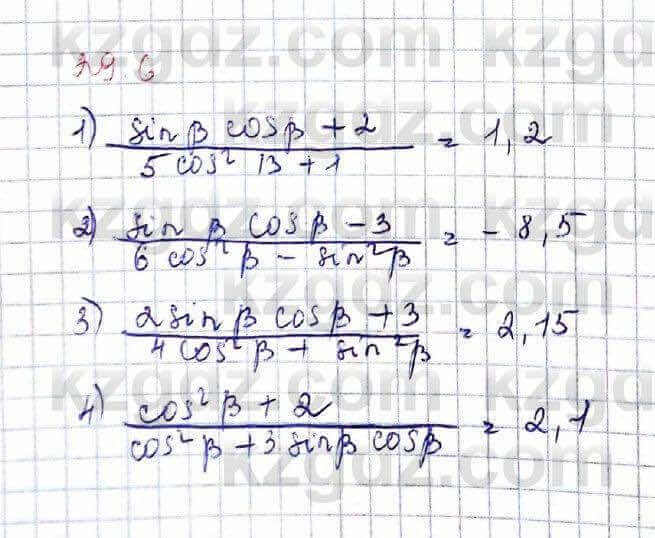 kzgdz.com kzgdz
39.6
1) (sin β cos β + 2) / (5 cos² β + 1) = 1,2
2) (sin β cos β - 3) / (6 cos² β - sin² β) = - 8,5
3) (2 sin β cos β + 3) / (4 cos² β + sin² β) = 2,15
4) (cos² β + 2) / (cos² β + 3 sin β cos β) = 2,1